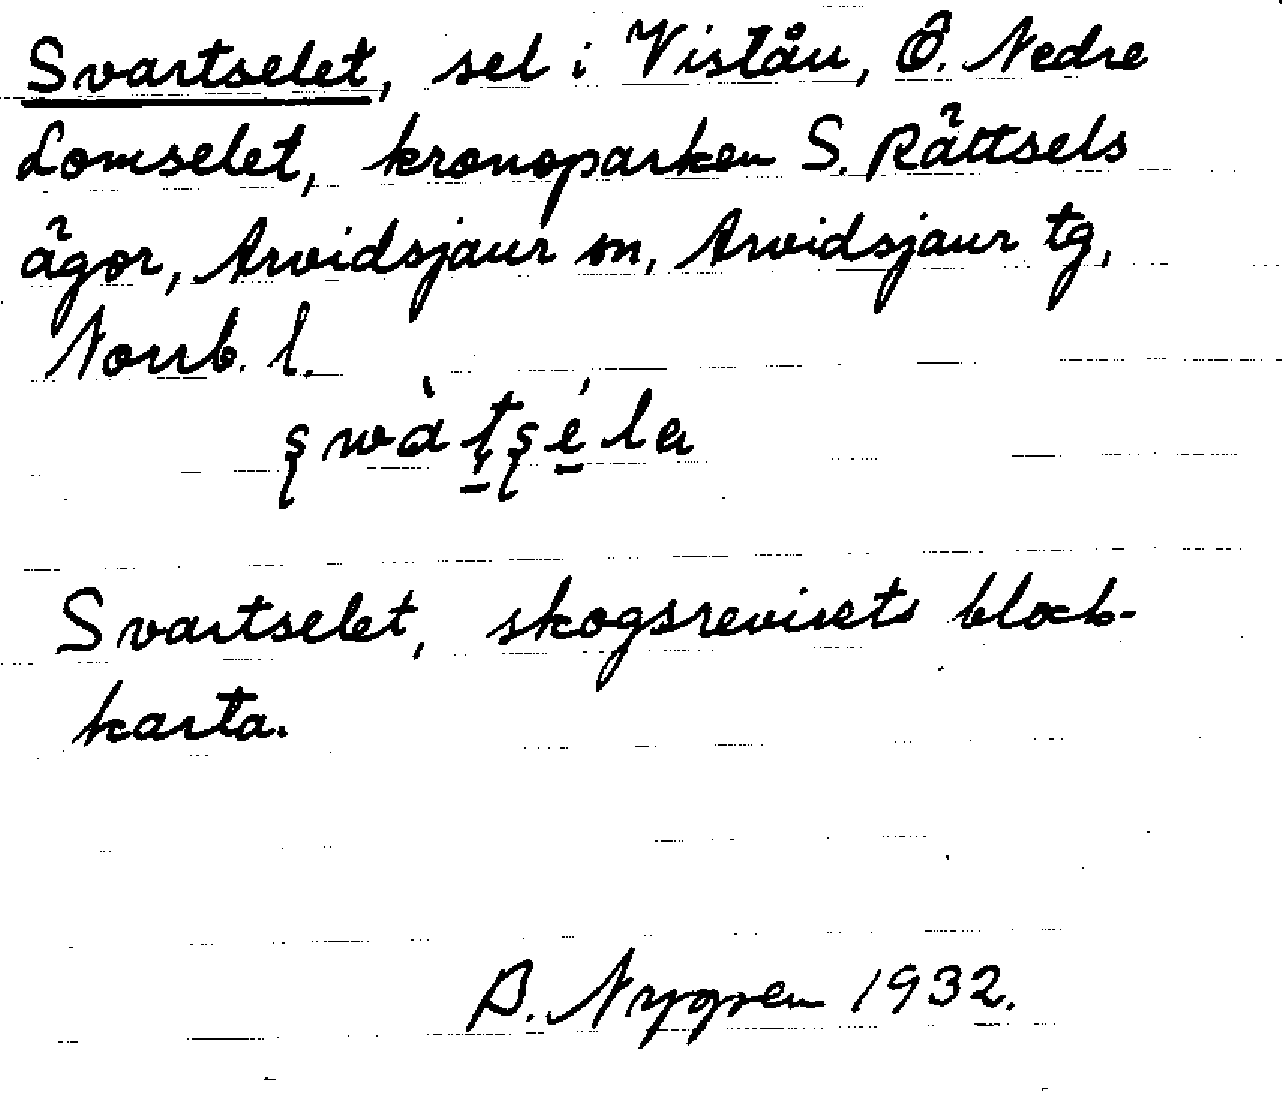 Svartselet, sel iViståu, Ö. Nedre
Lomselet, kronoparken S. Rättsels
ägor, Arvidsjaur sn, Arvidsjaur tg,
Norrb. l.
Svartselet, skogsrevirets block-
karta.
B. Nygren 1932.